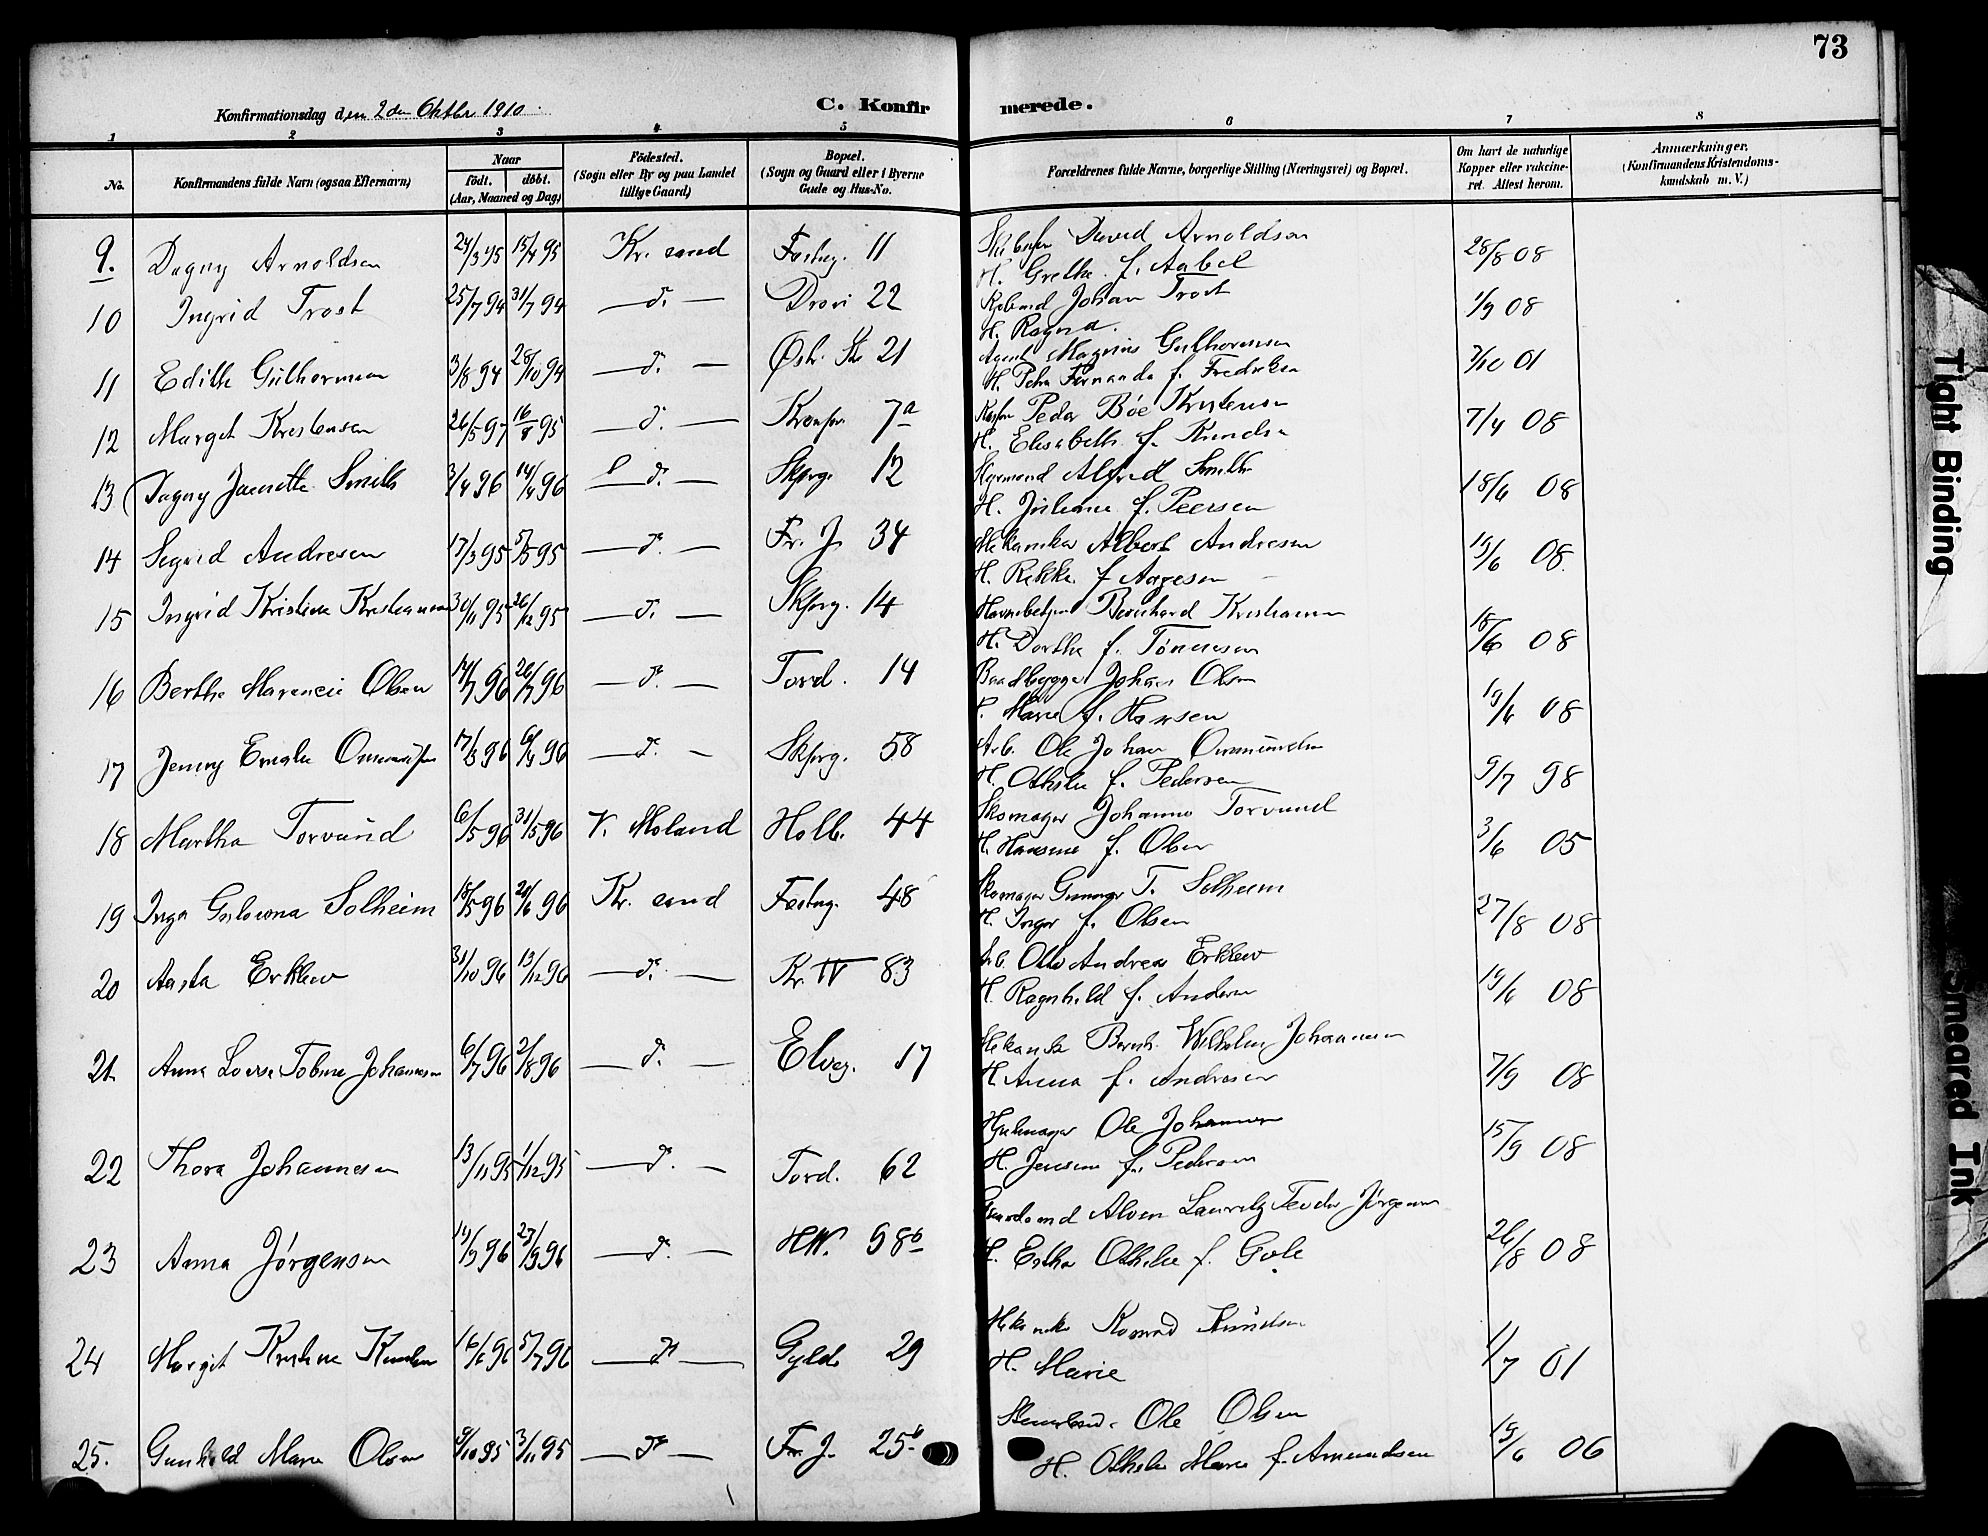 73
Konfirmationsdag den 2den Oktbr 1910
C. Konfirmerede.
1 2 3 4 5 6 7 8
No.
Konfirmandens fulde Navn (ogsaa Efternavn)
Naar
födt. döbt.
(Aar, Maaned og Dag)
Födested.
(Sogn eller By og paa Landet
tillige Gaard)
Bopæl.
(Sogn og Gaard eller i Byerne
Gade og Hus-No.
Forældrenes fulde Navne, borgerlige Stilling (Næringsvei) og Bopæl.
Om havt de naturlige
Kopper eller vakcine-
ret. Attest herom.
Anmærkninger.
(Konfirmandens Kristendoms-
kundskab m. V.)
9. Dagny Arnoldsen 24/3 95 15/4 95 Kr. sand Festng. 11 David Arnoldsen 28/8 08
H. Grethe f. Aabel
10 Ingrid Trost 25/7 94 31/7 94 — d. — Dron 22 Johan Trost 1/9 08
H. Ragna.
11 Edith Guthormsen 3/8 94 28/10 94 — d. — Østr. Str 21 Agent Magnus Guthormsen 7/10 01
H. Petra Fernanda f. Fredriksen
12 Margit Kristensen 26/5 97 16/8 95 — d. — 7a Peder Bøe Kristensen 7/4 08
H. Elisabeth f. Knudsen
13 Dagny Jeanette Smith 3/4 96 14/4 96 — d. — Skjprg. 12 Styrmand Alfred Smith 18/6 08
H. Juliane f. Peersen
14 Sigrid Andresen 17/3 95 5/5 95 — d. — Fr. J. 34 Mekaniker Albert Andresen 19/6 08
H. Rikke f. Aagesen
15 Ingrid Kristine Kristiansen 30/11 95 26/12 95 — d. — Skjprg. 14 Havnebetjent Bernhard Kristiansen 18/6 08
H. Dorthe f. Tønnesen
16 Berthe Marencie Olsen 14/7 96 26/7 96 — d. — Tord. 14 Baadbygger Johan Olsen 19/6 08
H. Marie f. Hansen
17 Jenny Emalie Ommundsen 17/3 96 6/4 96 — d. — Skjprg. 58 Arb. Ole Johan Ommundsen 9/7 98
H. Othilie f. Pedersen
18 Martha Torvund 6/5 96 31/5 96 V. Moland Holb. 44 Skomager Johannes Torvund 3/6 05
H. Hansine f. Olsen
19 Inga Solheim 18/5 96 24/6 96 Kr. sand Festng. 48 Skomager Gunnar T. Solheim 27/8 08
H. Inger f. Olsen
20 Aasta Erklev 31/10 96 13/12 96 — d. — Kr. IV 83 Arb. Otto Andreas Erklev 19/6 08
H. Ragnhild f. Andersen
21 Anna Lovise Tobine Johannesen 6/7 96 2/8 96 — d. — Elveg. 17 Mekanik. Bernh. Wilhelm Johannesen 7/9 08
H. Anna f. Andresen
22 Thora Johannesen 13/11 95 1/12 95 — d. — Tord. 62 Hjulmager Ole Johannesen 15/9 08
H. Jensine f. Pedersen
23 Anna Jørgensen 14/9 96 23/9 96 — d. — H.W. 98b Alven Lauritz Teodor Jørgensen 26/8 08
H. Ertha Othilie f. Gule
24 Margit Kristine Knudsen 16/6 96 5/7 96 — d — Gyld. 29 Mekanik. Konrad Knudsen 1/7 01
H. Marie
25. Gunhild Marie Olsen 9/10 95 3/11 95 — d — Fr. J. 25b Ole Olsen 19/6 06
H. Othilie Marie f. Amundsen
Tight Binding
Smeared Ink